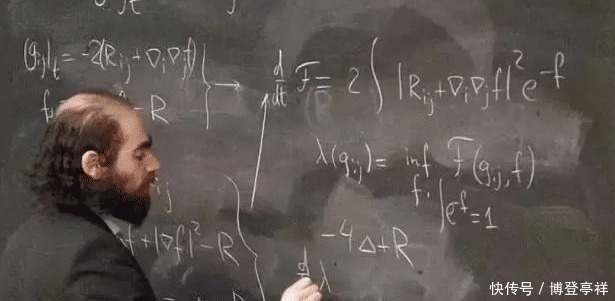 (g_ij)_t = -2(R_ij + ∇_i∇_j f) → d/dt F = 2 ∫ |R_ij + ∇_i∇_j f|² e^-f
- R
λ(g_ij) = inf F(g_ij, f)
f, ∫e^-f = 1
ij
-4Δ + R
+ |∇f|² - R
d/dt λ
快传号 / 博登亭祥